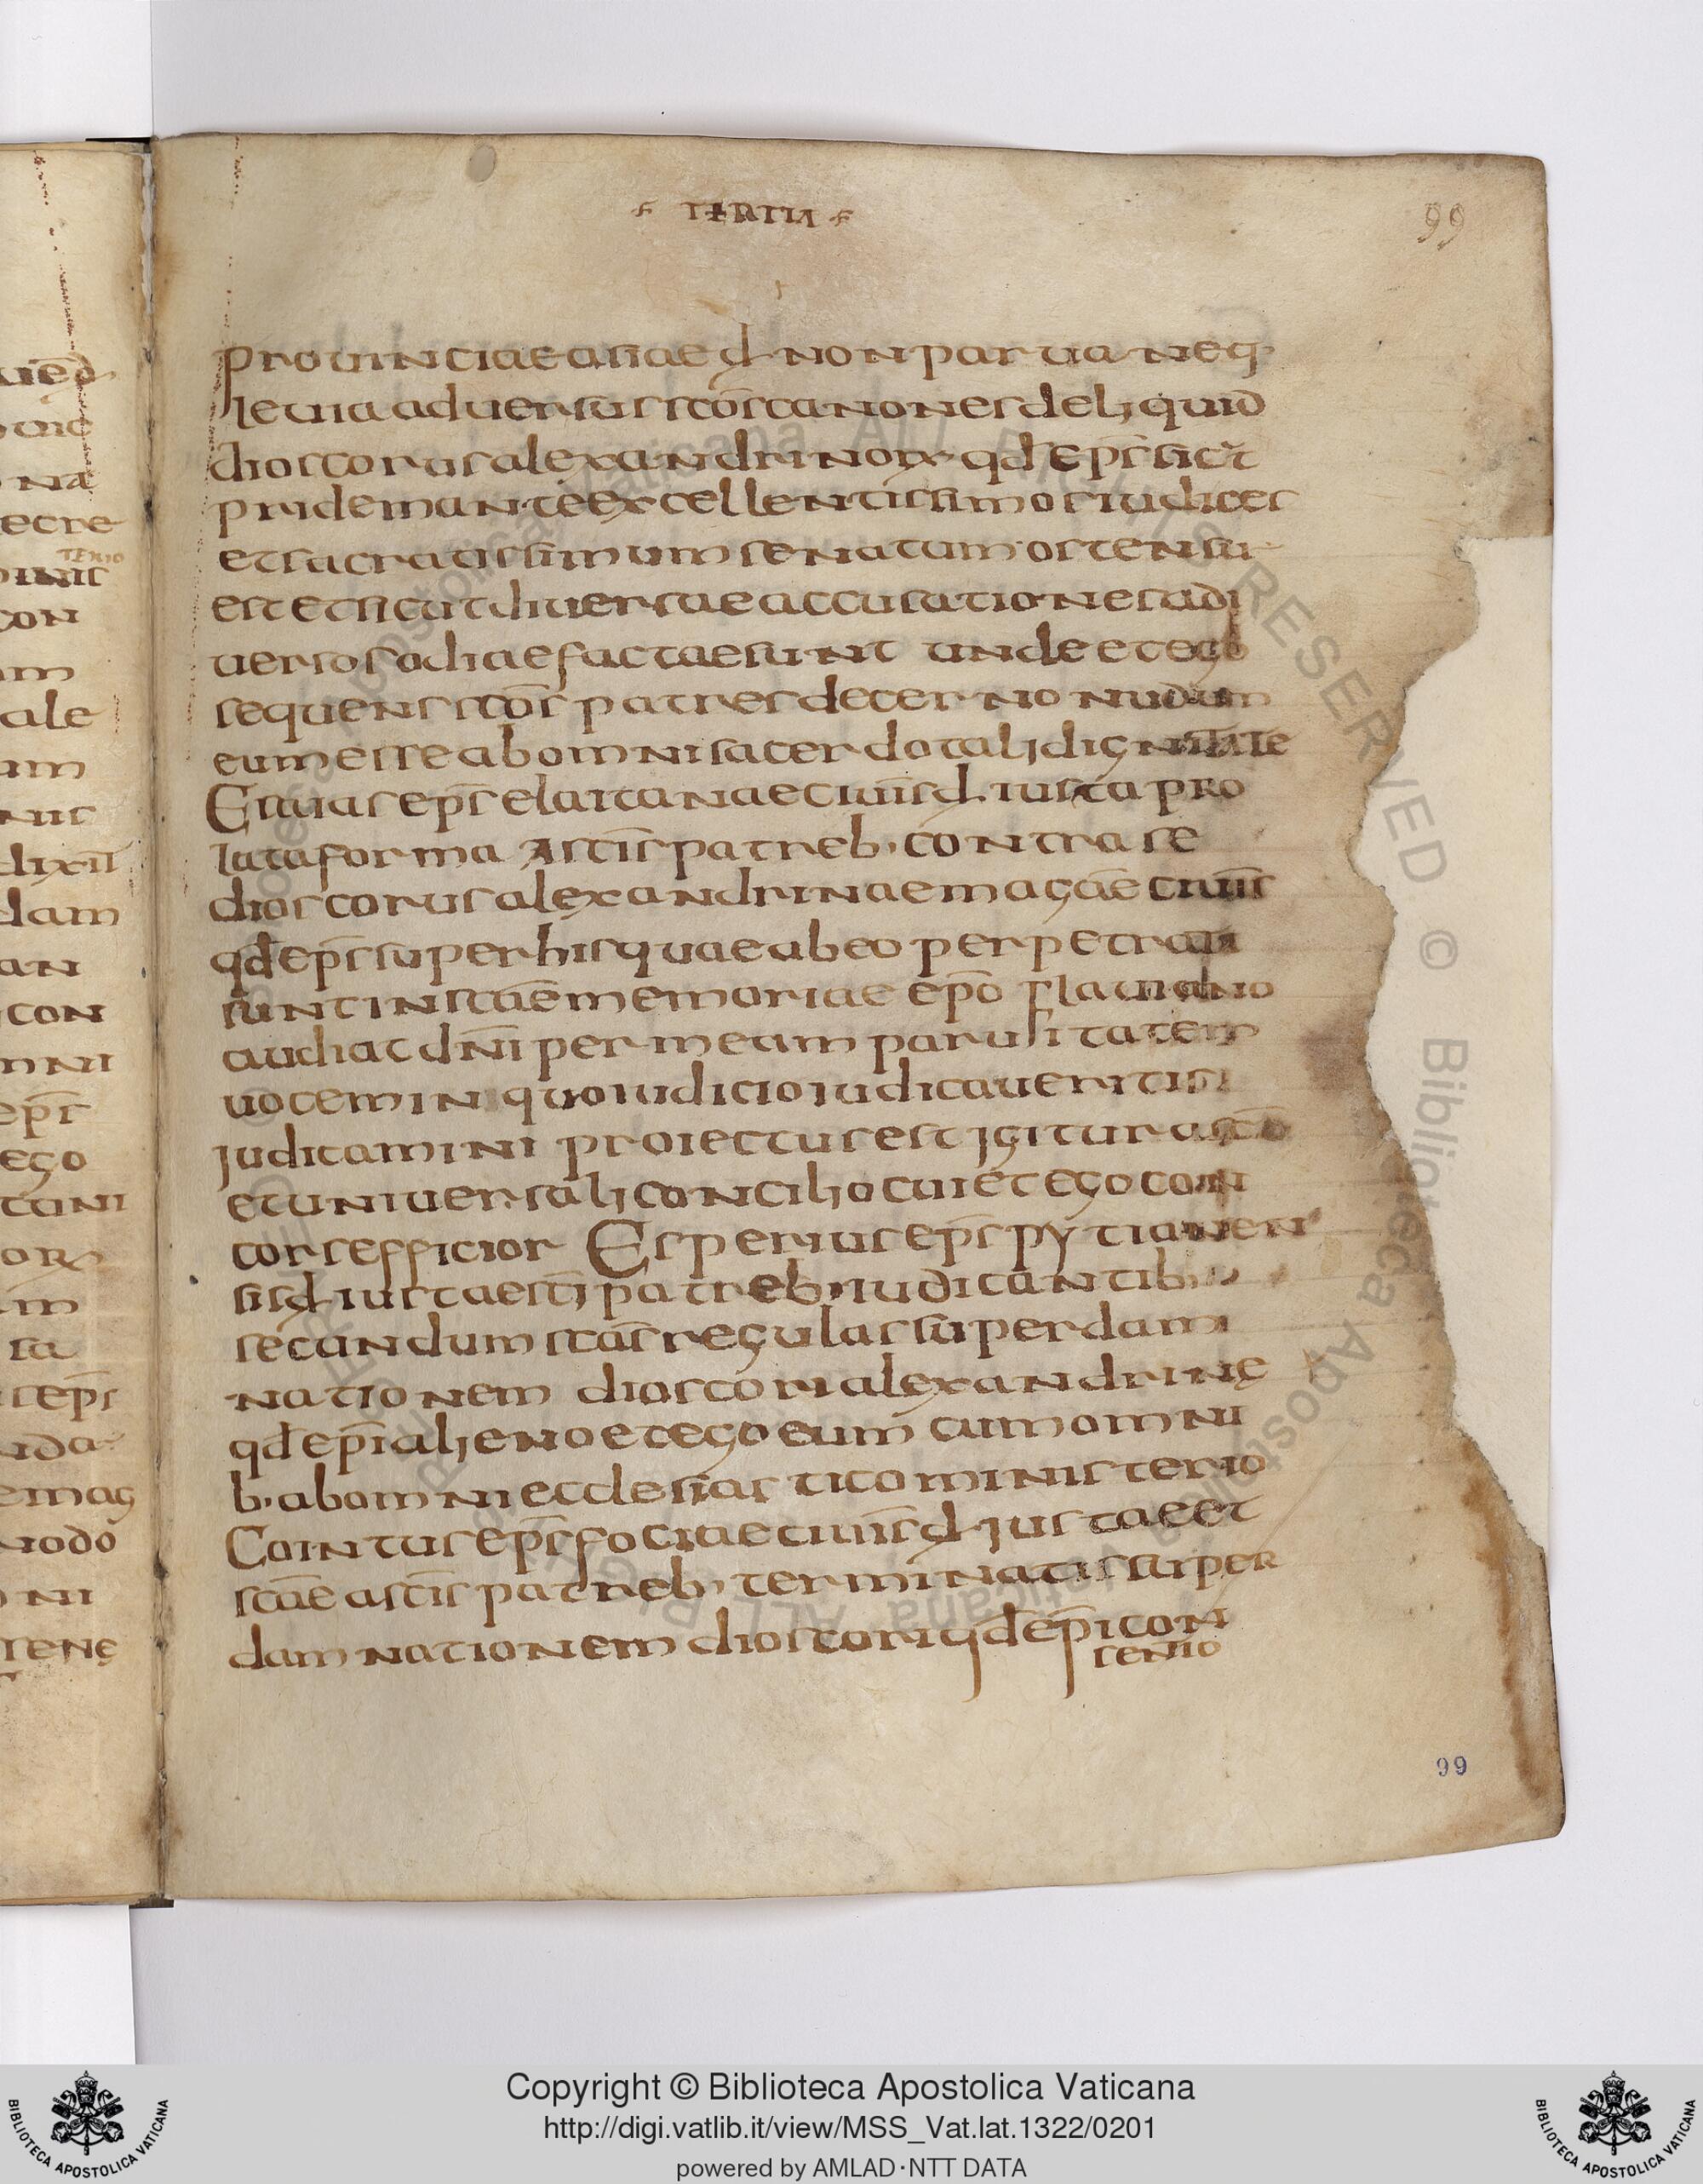 TERTIA
99
prouinciae asiae đ non parua neq·
leuia aduersus scōs canones deliquid
dioscorus alexandrinorx qđ ep̄s sicut
pridem ante excellentissimos iudices
et sacratissimum senatum ostensu
est et sicut diuersae accusationes ad
uersos odiae factae sunt unde et ego
sequens scōs patres decerno nudum
eum esse ab omni sacerdotali dignitate
Esaias ep̄s elaitanae ciuiīs đ iusta pro
lata forma a sc̄is patreb· contra se
dioscorus alexandrinae magnae ciuiīs
qđ ep̄s super his quae ab eo perpetrati
sunt in sc̄ae memoriae ep̄o flauiano
audiat dn̄i per meam parusitatem
uocem in quo iudicio iudicaueritis
judicamini proiectus est igitur a sc̄o
et uniuersali concilio cui et ego con
cors efficior Esperius ep̄s pytianen
sis đ iusta e sc̄i patreb· iudicantib·
secundum sc̄as regulas super dam
nationem dioscori alexandrinę
qđ ep̄i alieno et ego eum cum omni
b· ab omni ecclesiastico ministerio
Cointus ep̄s fociae ciuiīs đ justae et
sc̄ae a sc̄is patreb· terminatis super
damnationem dioscori qđ ep̄i con
sentio
99
ego
con
dam
ale
nodo
Copyright © Biblioteca Apostolica Vaticana
http://digi.vatlib.it/view/MSS_Vat.lat.1322/0201
powered by AMLAD·NTT DATA
BIBLIOTECA APOSTOLICA VATICANA
BIBLIOTECA APOSTOLICA VATICANA